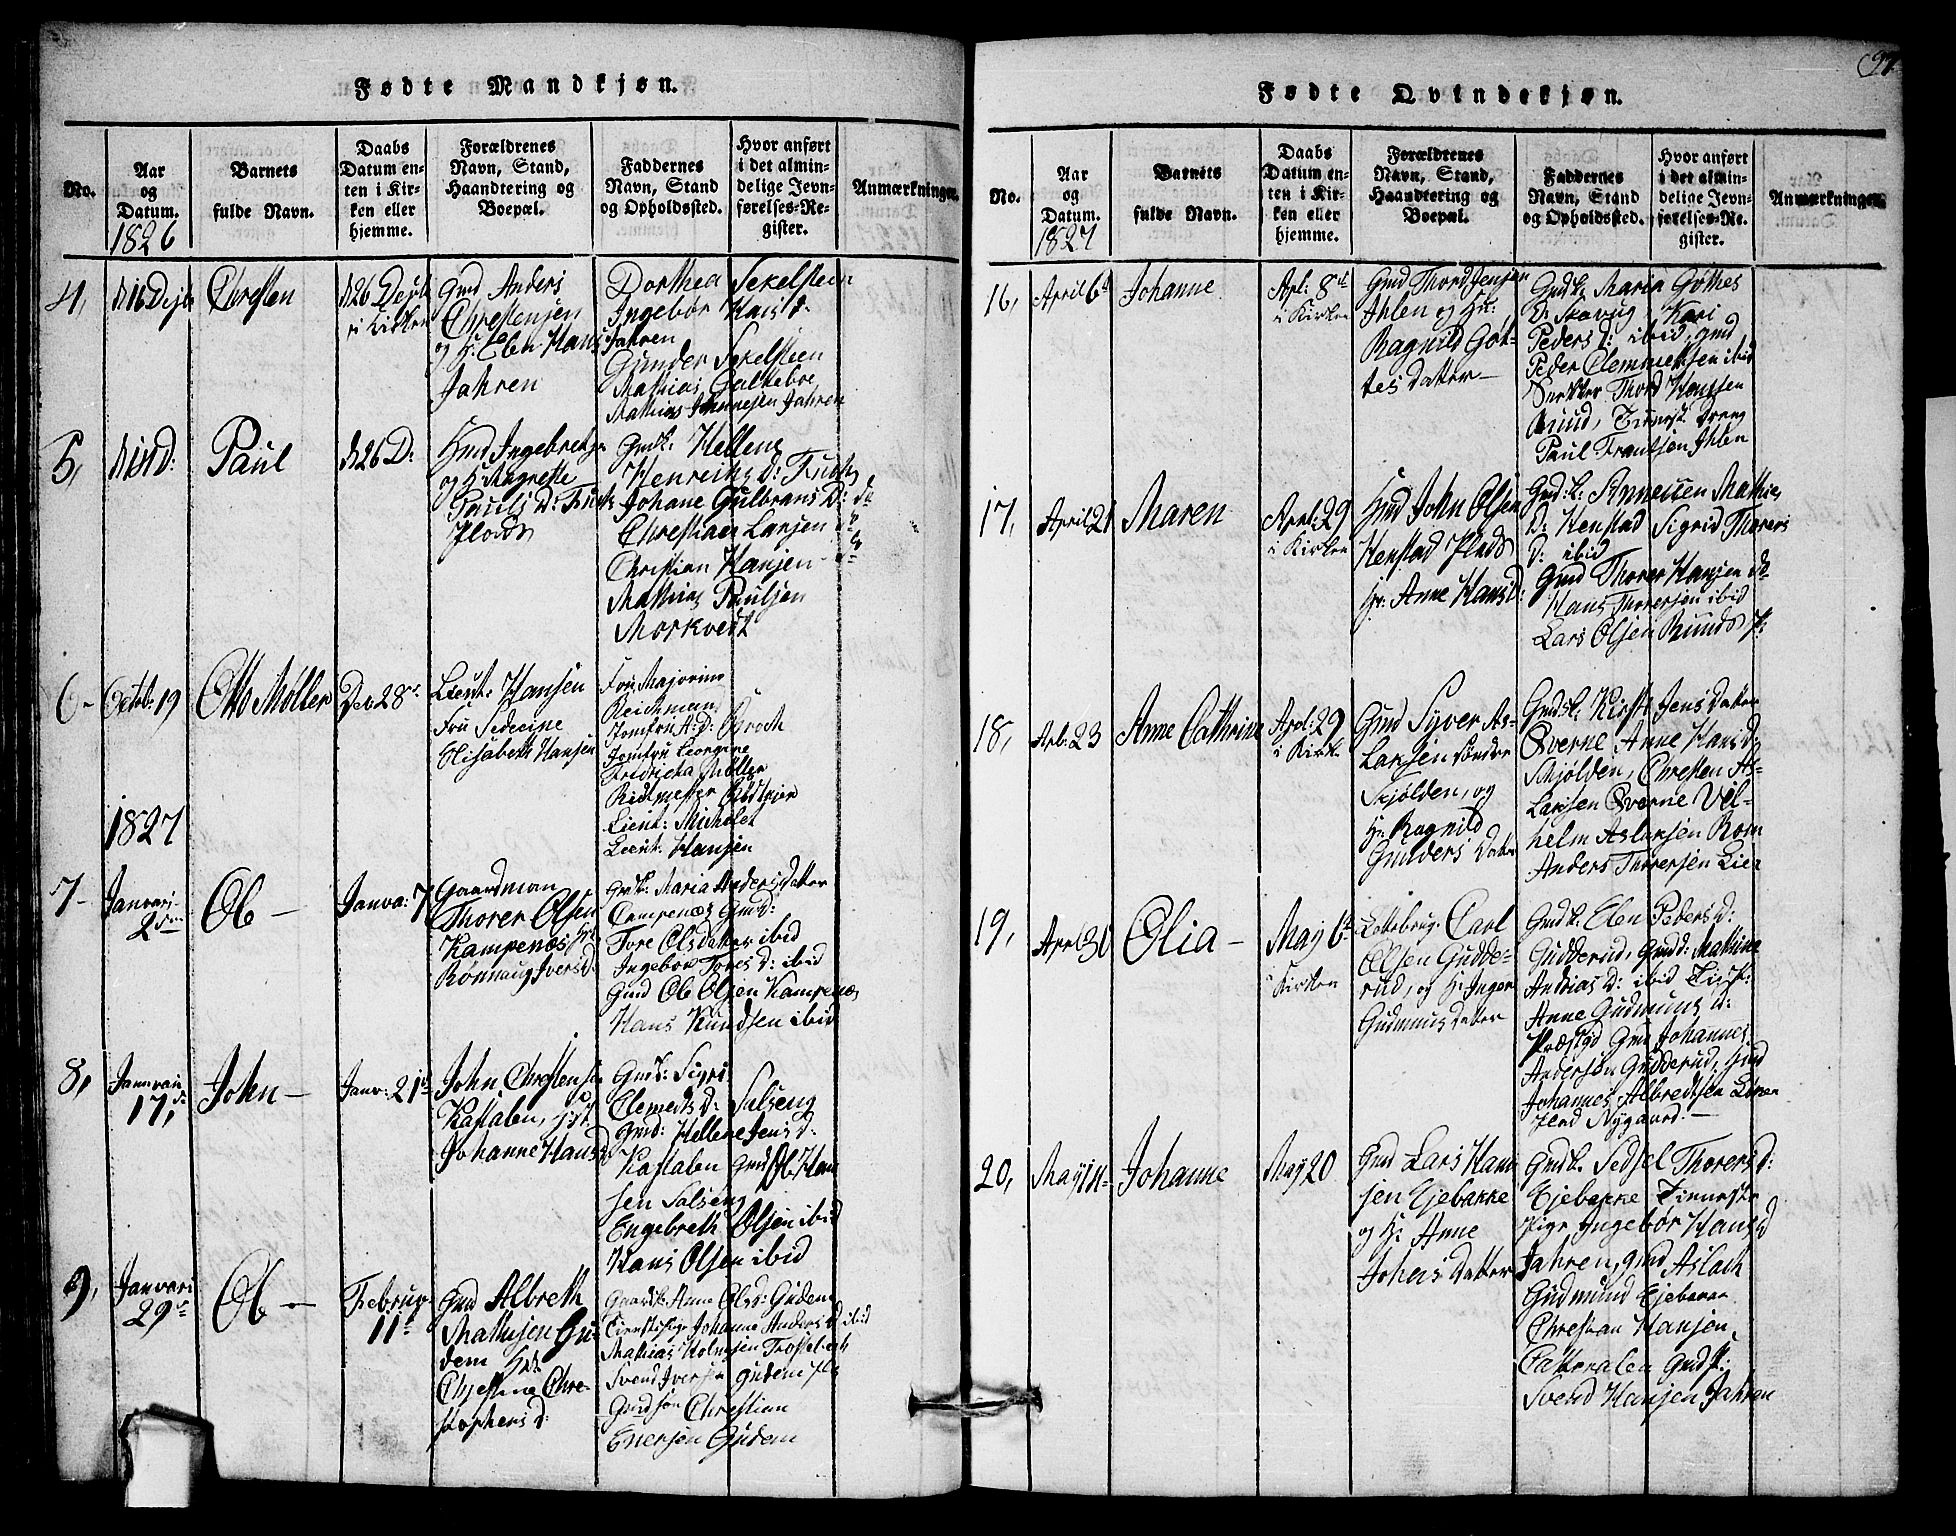 Fødte Mandkjøn.
No.
Aar
og
Datum.
1826
Barnets
fulde Navn.
Daabs
Datum en-
ten i Kir-
ken eller
hjemme.
Forældrenes
Navn, Stand,
Haandtering og
Boepæl.
Faddernes
Navn, Stand
og Opholdssted.
Hvor anført
i det almin-
delige Jevn-
førelses-Re-
gister.
Anmærkninger.
4,
Chresten
d 26 Decb
i Kirken
Gmd Anders
Chrestensen
og H: Elen Hans
Jahren
Dorthea Sekelsteen
Ingebør Hansd:
Jahren
Gunder Sekelsteen
Mathias Galtebøe
Mathias Johannesen Jahren
5,
Paul
d 26 D:
Hmd Ingebret
og H: Magrethe
Pouls D:
Plads
Gmdk: Hellene
Henrichs d:
Johane Gulbrans D: do
Christian Larsen do
Christian Hansen do
Mathias Paulsen
Morkvedt
6-
Octob: 19
Otto Møller
Dec 28
Lieut: Hansen
Fru
Elisabeth Hansen
Fru Majorine
Reichman
Jomfru A: D: Broch
Jomfru Georgine
Fredricka Møller
Ridtmester
Lieut: Michelet
Lieut. Hansen
1827
7-
Januari
2
Ole -
Janva: 7
Gaardman
Thorer Olsen
Kampenæs H:
Rønnaug Ivers d
Gmdk: Maria Anders datter
Campenæs Gmd:
Tore Olsdatter ibid
Ingebør Tores d: ibid
Gmd Ole Olsen Kampenæs
Hans Knudsen ibid
8,
Januari
17,
John -
Janv: 21
John Chrestensen
Kastalen,
Johanne Hans d
Gmdk: Sigri
Clemets d: Salseng
Gmd: Hellene Jens d:
Kastalen Gmd Ole Han
sen Salseng
Engebreth Olsen ibid
Hans Olsen ibid
9,
Januari
29
Ole -
Februar
11
Gmd Albreth
Mathisen Gu-
dem H:
Chrestine Chre-
stophers d:
Gaardk: Anne Olsd: Gudem
Tienstepige Johanne Anders d ibid
Mathias
Svend Iversen Gudem
Gmdsøn Christian
Enersen Gudem
97
Fødte Qvindekjøn.
No.
Aar
og
Datum.
1827
Barnets
fulde Navn.
Daabs
Datum en-
ten i Kir-
ken eller
hjemme.
Forældrenes
Navn, Stand,
Haandtering og
Boepæl.
Faddernes
Navn, Stand
og Opholdssted.
Hvor anført
i det almin-
delige Jevn-
førelses-Re-
gister.
Anmærkninger.
16,
April 6
Johanne
Apl: 8
i Kirken
Gmd Thord Jensen
Ihlen og Hu:
Ragnild Gøt-
tes datter -
Gmdk: Maria Gøttes
D: Skavug Kari
Peders d: ibid, gmd
Peder Clemmetsen ibid
Thord Hansen
Ruud, Tienest dreng
Paul Frantsen Ihlen
17,
April 21
Maren
April: 29
i Kirken
Hmd John Olsen
Henstad Plads
H: Anne Hans d:
Gmd: k: Anne Mathies
D: Henstad Sigrid Thorers
D: ibid
Gmd Thorer Hansen do
Hans Thorersen ibid
Lars Olsen Ruuds P:
18,
Apl: 23
Anne Cathrine
Apl: 29
i Kirk:
Gmd Syver As-
Larsen søndre
Skjølden, og
H: Ragnild
Gunders datter
Gmdsk: Kirsti Jens datter
Qverne Anne Hans d
Skjølden, Chresten As-
Larsen Qverne Vil-
helm Aslarsen Rom
Anders Thorersen Lien
19,
Aprl 30
Olia -
May 6
i Kirken
Carl
Olsen Gudde-
rud, og H: Inger
Gudmuns datter
Gmdk. Elen Peders d:
Gudderud, Gmdd: Mathina
Andrias d: ibid Tienst:
Anne Gudmuns d:
Præstgd Gmd Johannes
Andersen Gudderud, Hmd
Johannes Albredtsen
Plad Nygaard. -
20,
May
Johanne
May 20
Gmd Lars Han
sen Ejebakke
og H: Anne
Johers datter
Gmdk. Sedsel Thorers d:
Ejebakke Tieneste
Pige Ingebør Hans d
Jahren, gmd Aslach
Gudmund Ejebakke
Chrestian Hansen
Catteralen Gmds:
Svend Hansen Jahren